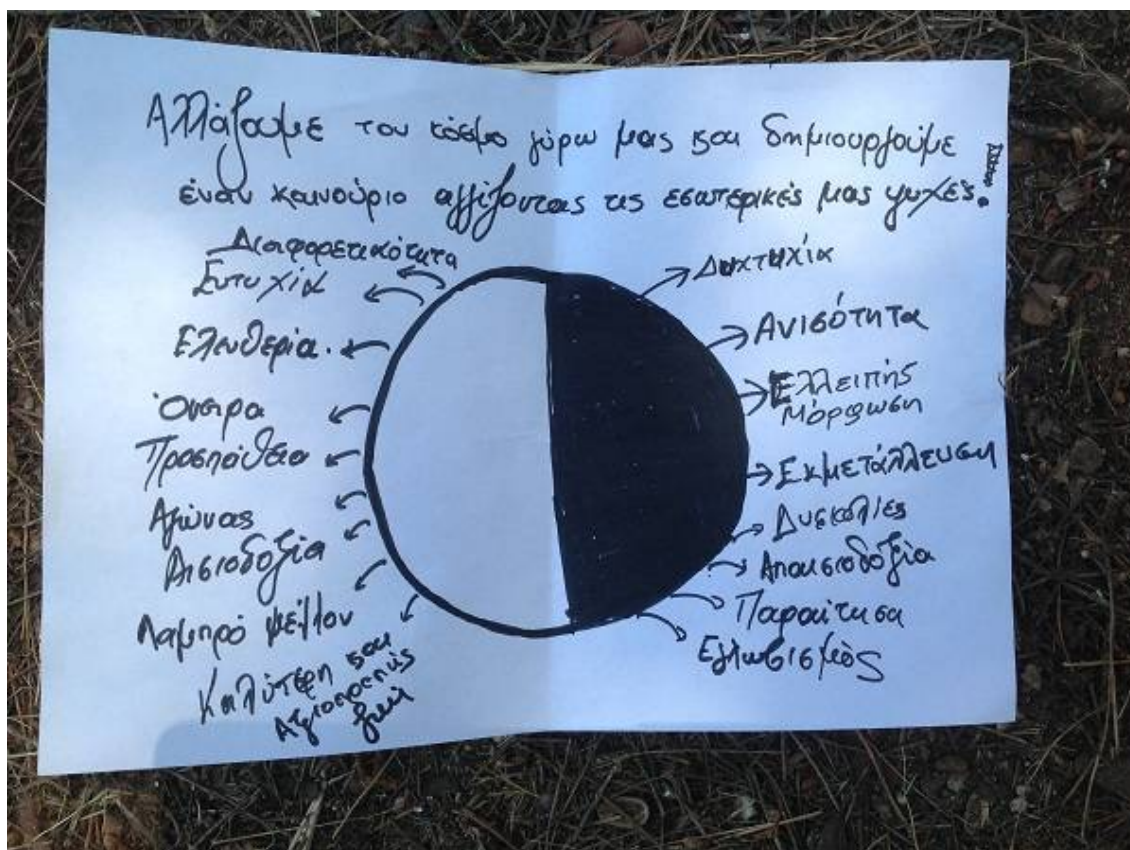 Αλλάζουμε τον κόσμο γύρω μας και δημιουργούμε
έναν καινούριο αγγίζοντας τις εσωτερικές μας ψυχές!
Διαφορετικότητα
Ευτυχία
Ελευθερία.
Όνειρα
Προσπάθεια
Αγώνας
Αισιοδοξία
Λαμπρό μέλλον
Καλύτερη και
Αξιοπρεπής
ζωή
Δυχτυχία
Ανισότητα
Ελλειπής
Μόρφωση
Εκμετάλλευση
Δυσκολίες
Απαισιοδοξία
Παραίτηση
Εγωισμός